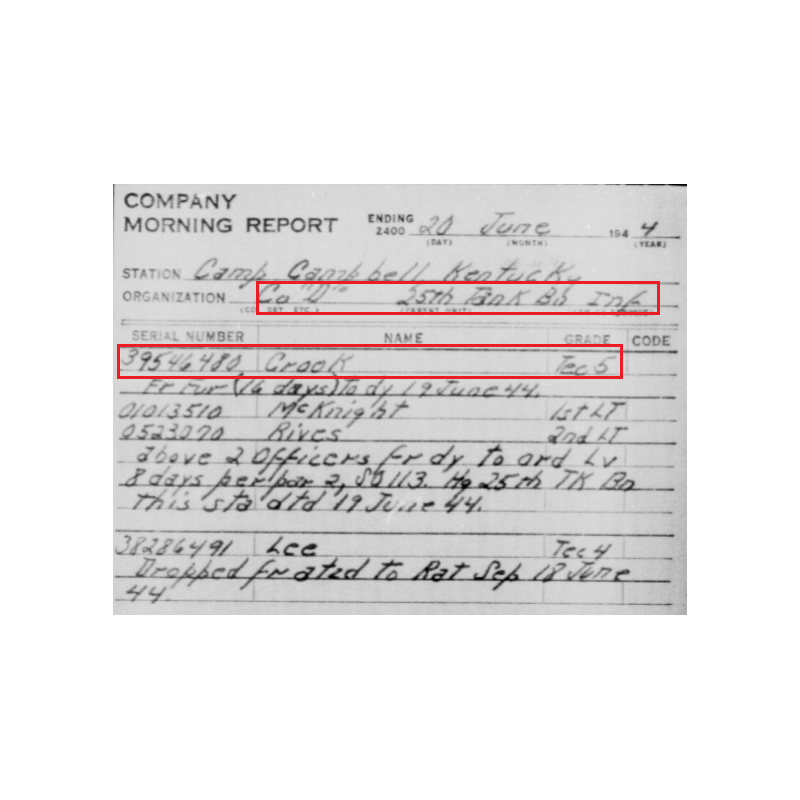 COMPANY
MORNING REPORT ENDING 2400 20 June 1944
(DAY) (MONTH) (YEAR)
STATION Camp Campbell Kentucky
ORGANIZATION Co "D" 25th Tank Bn Inf
SERIAL NUMBER NAME GRADE CODE
39546480 Crook Tec 5
Fr Fur (16 days) To dy 19 June 44.
01013510 McKnight 1st LT
0523070 Rives 2nd LT
above 2 Officers fr dy to ord Lv
8 days per par 2, SO 113. Hq 25th TK Bn
this sta dtd 19 June 44.
38286491 Lee Tec 4
Dropped fr atzd to Rat Sep 18 June
44